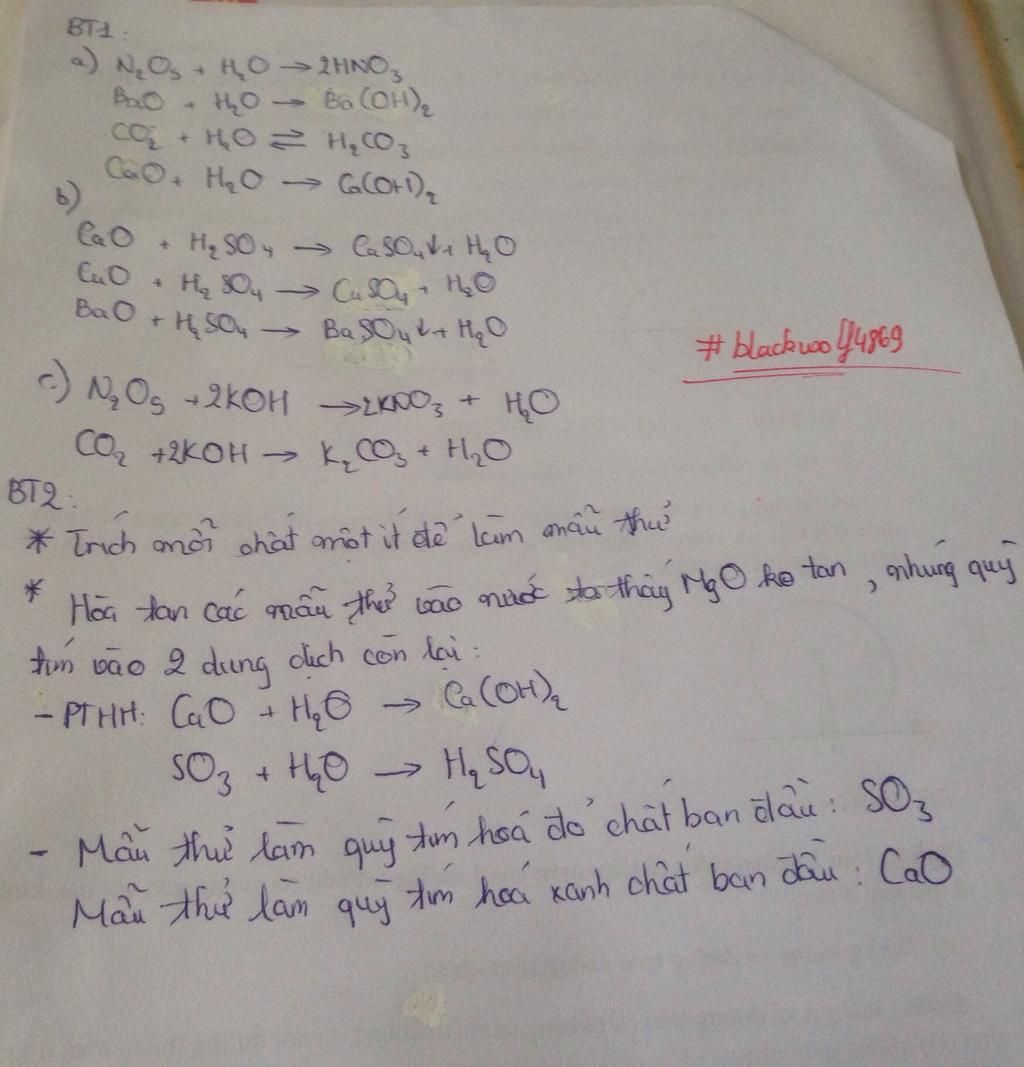 BT1:
a) N₂O₅ + H₂O → 2HNO₃
BaO + H₂O → Ba(OH)₂
CO₂ + H₂O ⇌ H₂CO₃
CaO + H₂O → Ca(OH)₂
b)
CaO + H₂SO₄ → CaSO₄↓ + H₂O
CuO + H₂SO₄ → CuSO₄ + H₂O
BaO + H₂SO₄ → BaSO₄↓ + H₂O
#blackwolf4869
c) N₂O₅ + 2KOH → 2KNO₃ + H₂O
CO₂ + 2KOH → K₂CO₃ + H₂O
BT2:
* Trích mỗi chất một ít để làm mẫu thử
* Hòa tan các mẫu thử vào nước ta thấy MgO ko tan, nhúng quỳ
tím vào 2 dung dịch còn lại:
- PTHH: CaO + H₂O → Ca(OH)₂
SO₃ + H₂O → H₂SO₄
- Mẫu thử làm quỳ tím hoá đỏ chất ban đầu: SO₃
Mẫu thử làm quỳ tím hoá xanh chất ban đầu: CaO